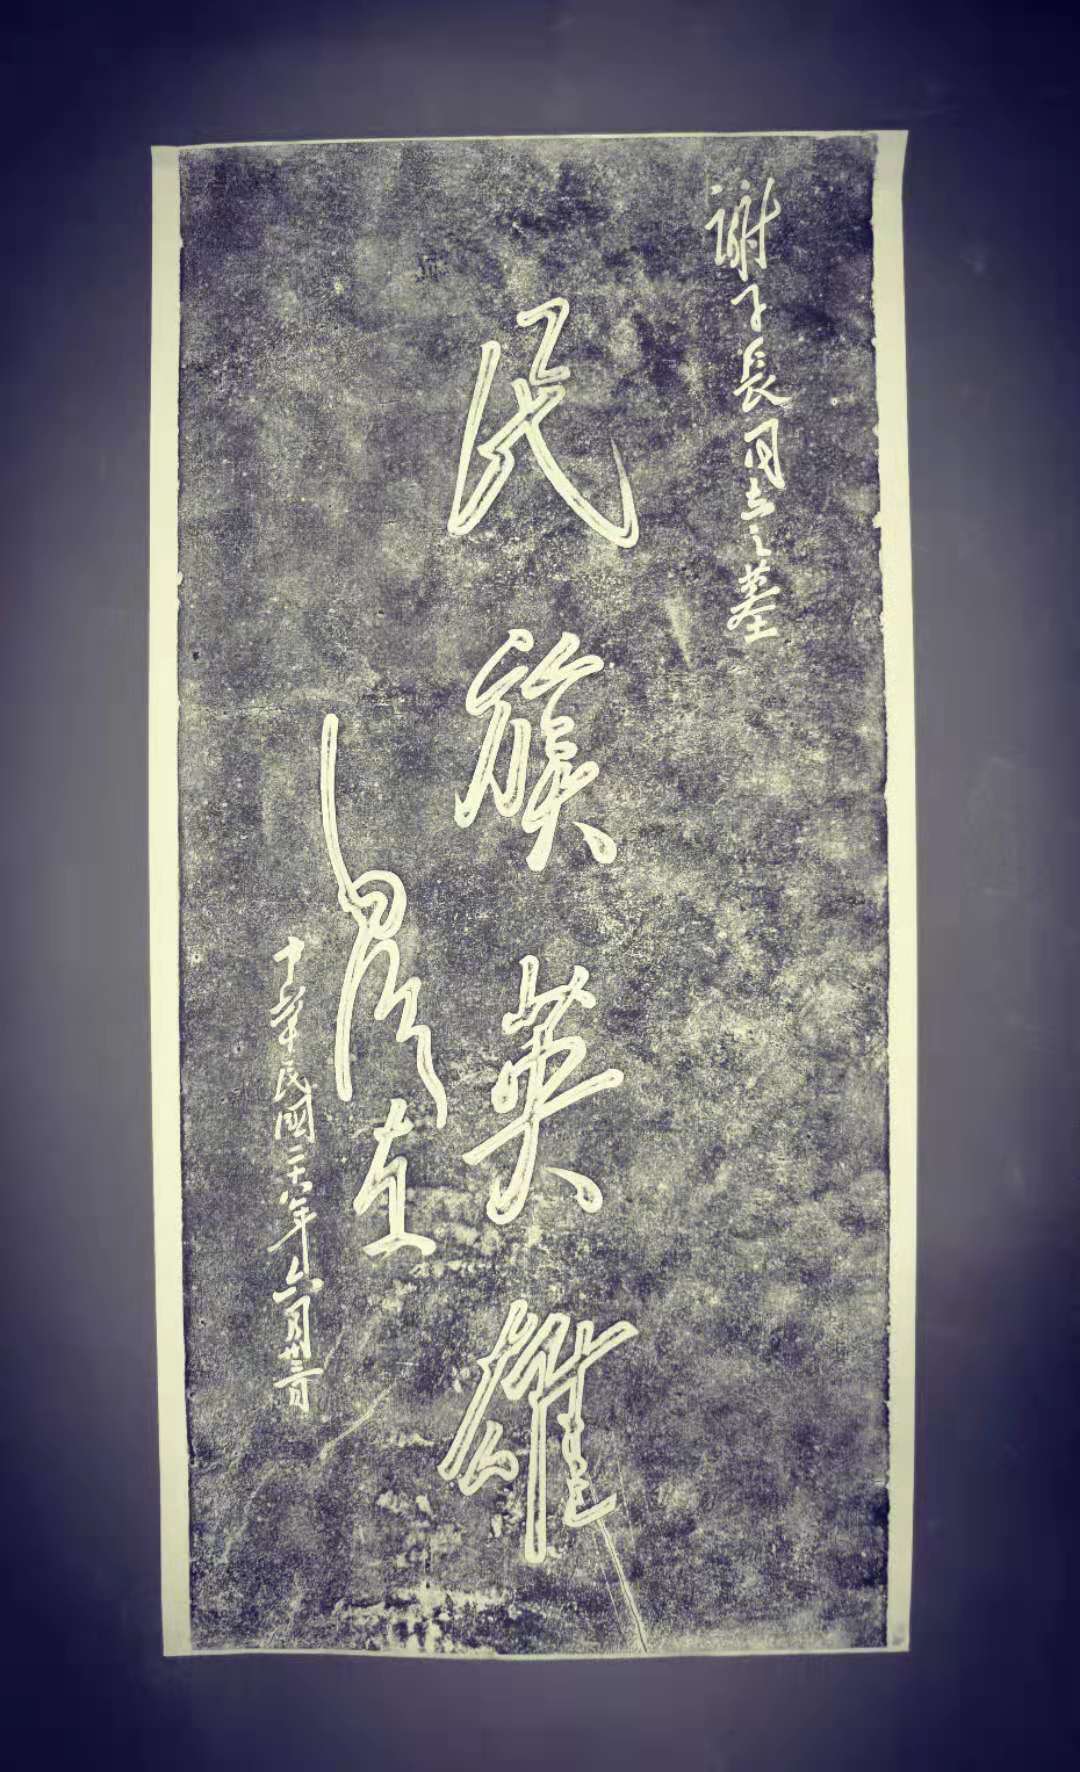 謝子長同志之墓
民族英雄
毛澤东
中華民國二十八年六月廿三日